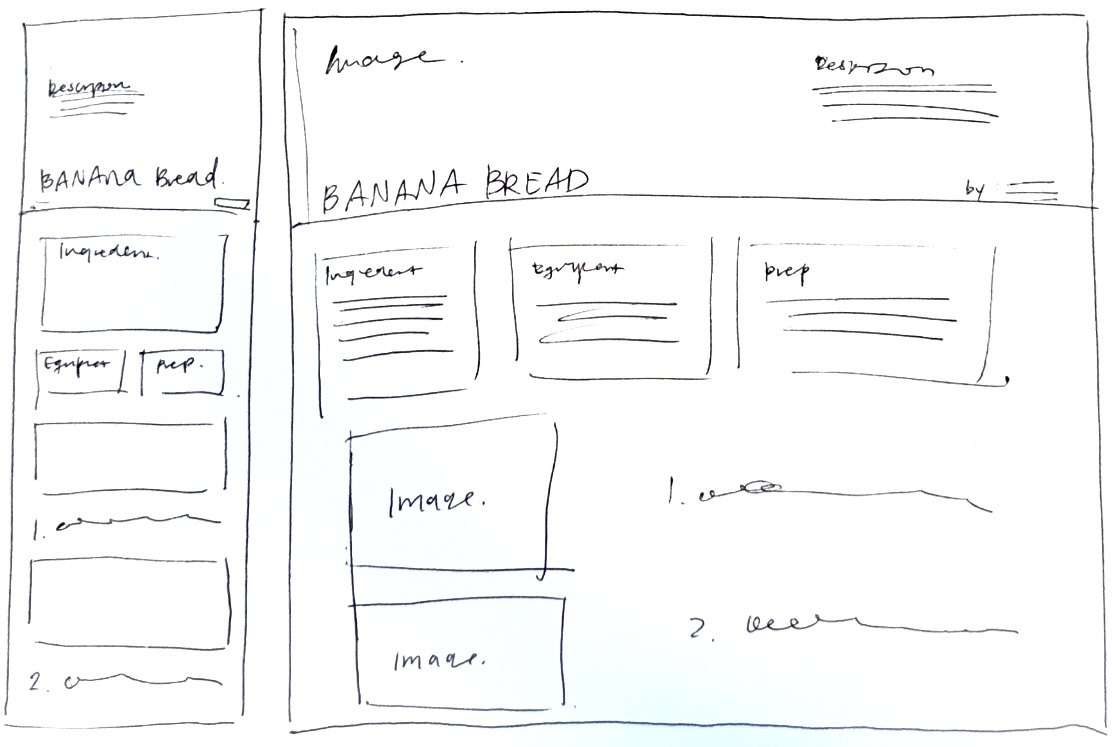 Description
BANANA Bread.
Ingredient.
Equipment
Prep.
1.
2.
Image.
Description
BANANA BREAD
by
Ingredient
Equipment
Prep
Image.
1.
Image.
2.